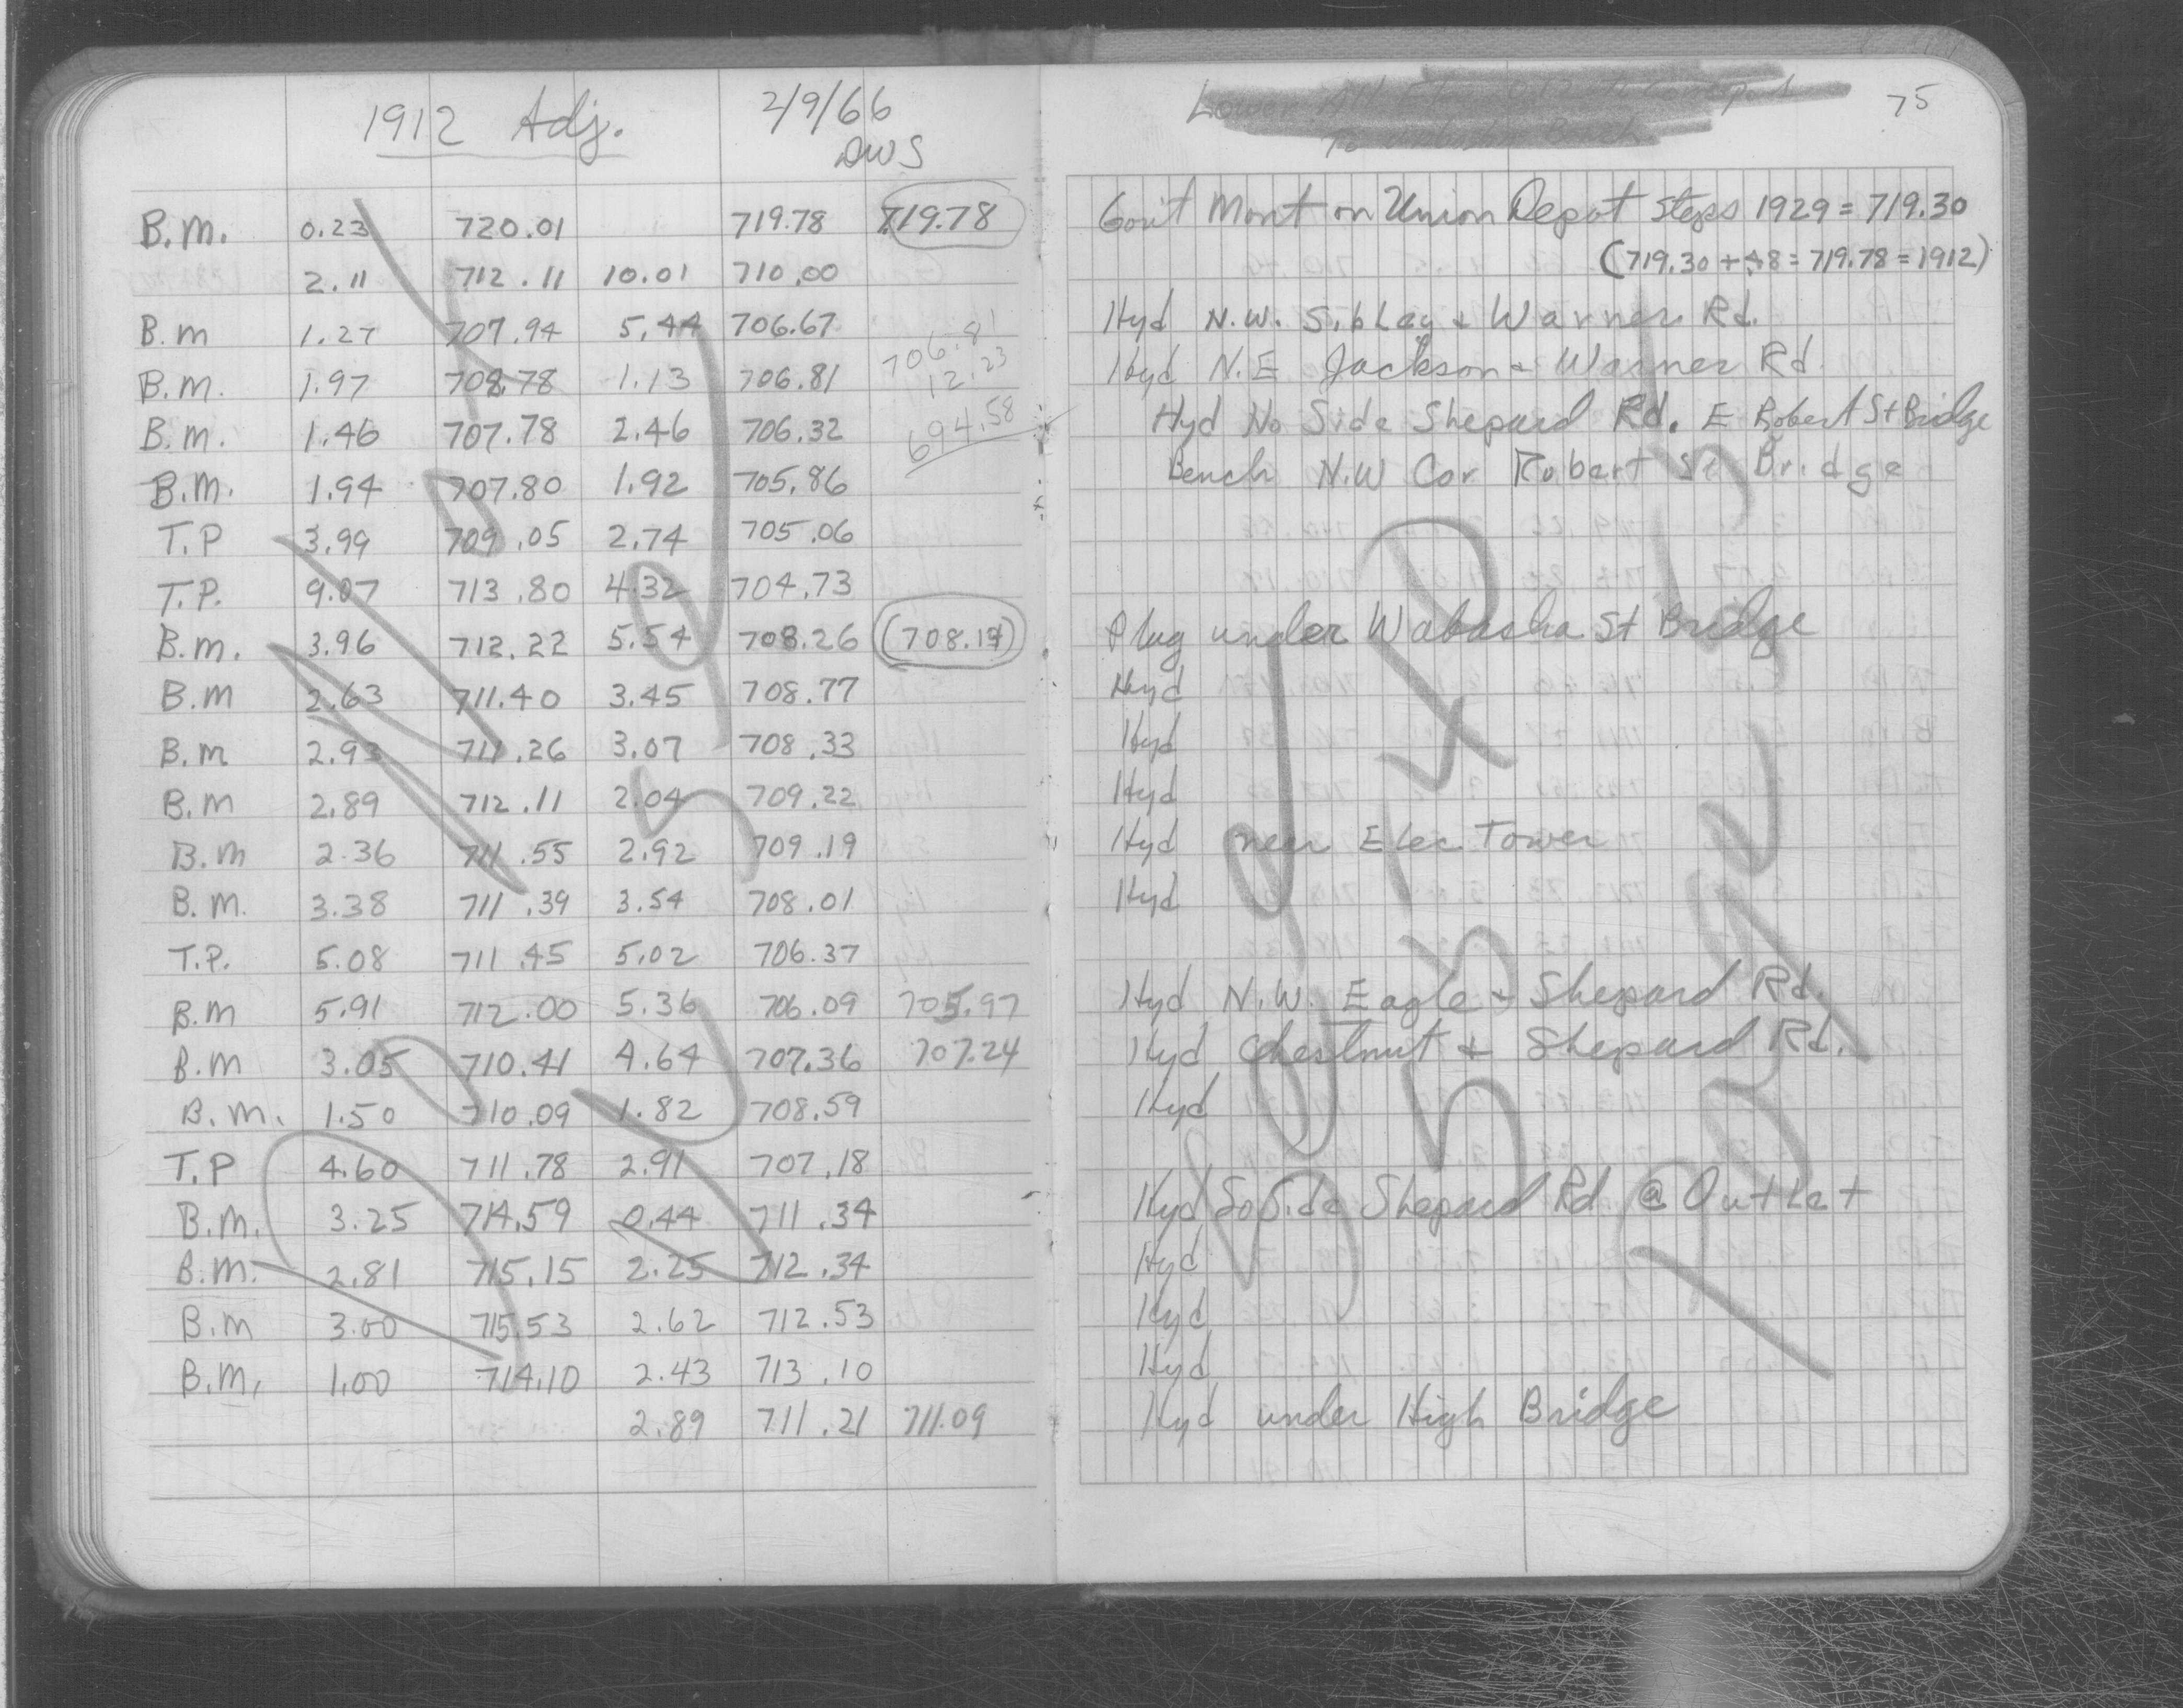 1912 Adj. 2/9/66
DWS
B.M. 0.23 720.01 719.78 719.78
2.11 712.11 10.01 710.00
B.M 1.27 707.94 5.44 706.67
B.M. 1.97 708.78 1.13 706.81 706.81
12.23
B.M. 1.46 707.78 2.46 706.32 694.58
B.M. 1.94 707.80 1.92 705.86
T.P 3.99 709.05 2.74 705.06
T.P. 9.07 713.80 4.32 704.73
B.M. 3.96 712.22 5.54 708.26 (708.14)
B.M 2.63 711.40 3.45 708.77
B.M 2.93 711.26 3.07 708.33
B.M 2.89 712.11 2.04 709.22
B.M 2.36 711.55 2.92 709.19
B.M. 3.38 711.39 3.54 708.01
T.P. 5.08 711.45 5.02 706.37
B.M 5.91 712.00 5.36 706.09 705.97
B.M 3.05 710.41 4.64 707.36 707.24
B.M. 1.50 710.09 1.82 708.59
T.P 4.60 711.78 2.91 707.18
B.M. 3.25 714.59 0.44 711.34
B.M. 2.81 715.15 2.25 712.34
B.M 3.00 715.53 2.62 712.53
B.M. 1.00 714.10 2.43 713.10
2.89 711.21 711.09
75
Gov't Mon't on Union Depot Steps 1929 = 719.30
(719.30 + .48 = 719.78 = 1912)
Hyd N.W. Sibley & Warner Rd.
Hyd N.E Jackson & Warner Rd.
Hyd No Side Shepard Rd. E Robert St Bridge
Bench N.W Cor Robert St Bridge
Plug under Wabasha St Bridge
Hyd
Hyd
Hyd
Hyd near Elec Tower
Hyd
Hyd N.W. Eagle & Shepard Rd.
Hyd Chestnut & Shepard Rd.
Hyd
Hyd So Side Shepard Rd @ Outlet
Hyd
Hyd
Hyd
Hyd under High Bridge